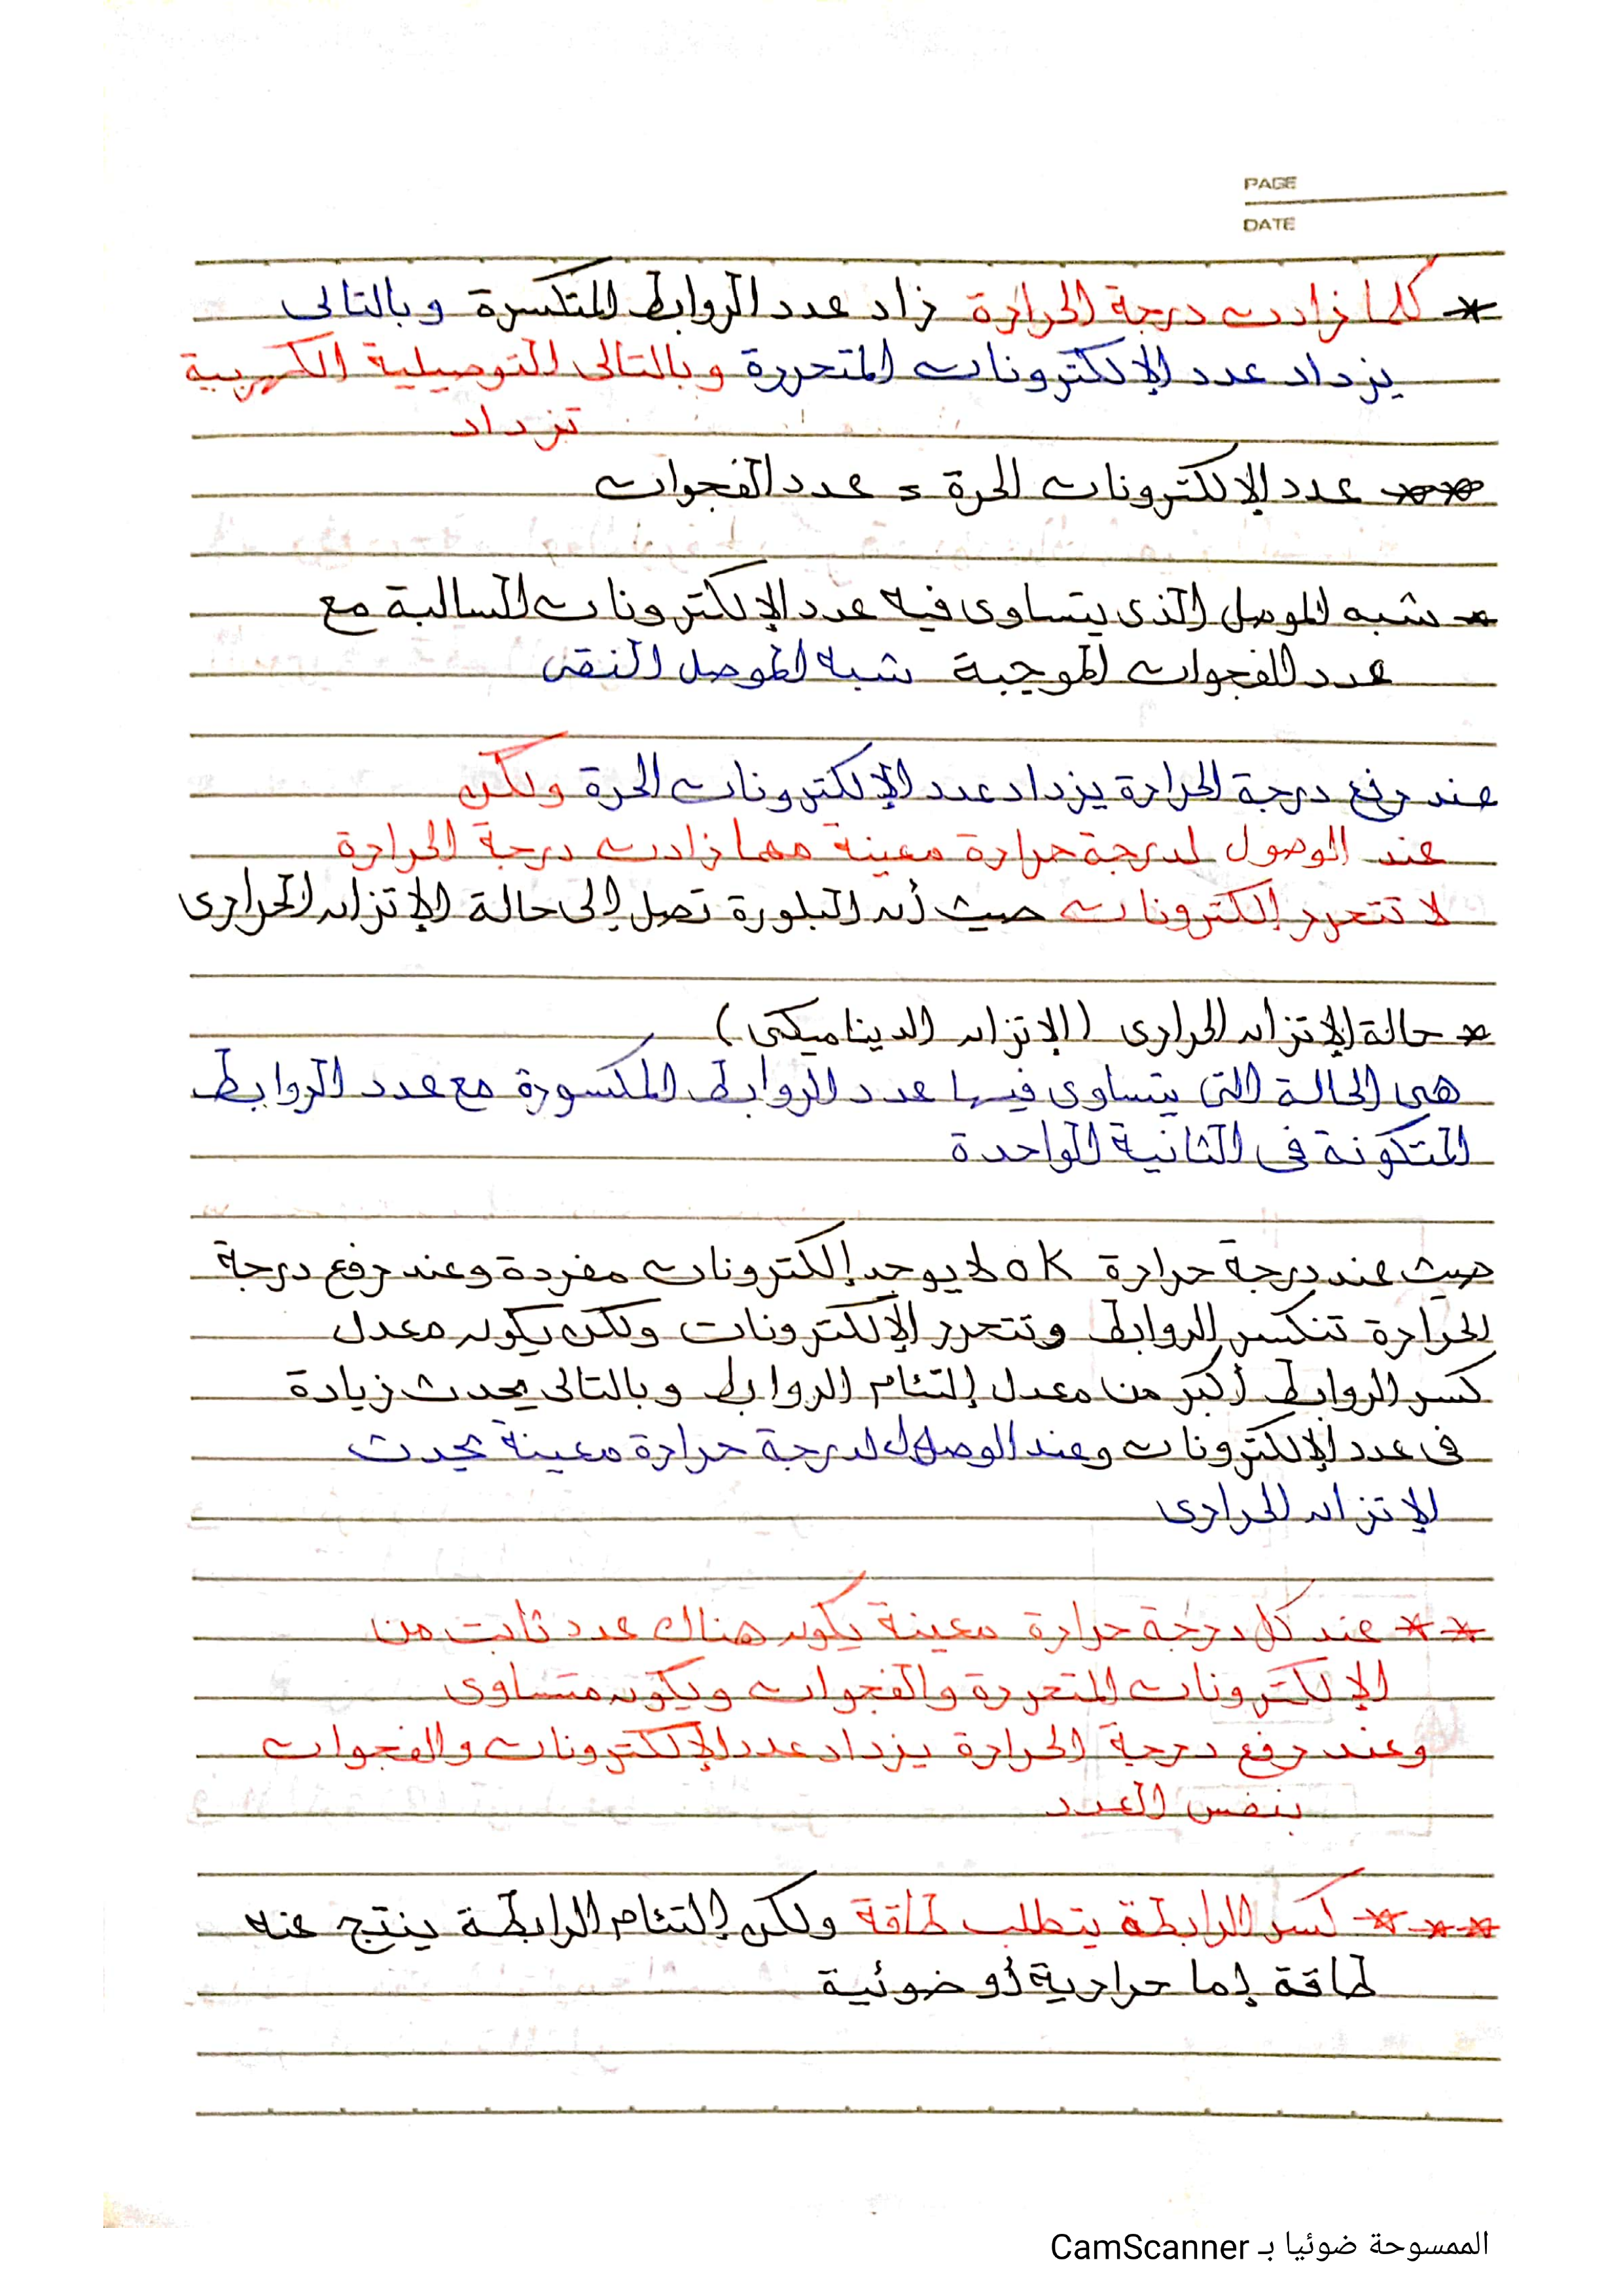 PAGE
DATE
* كلما زادت درجة الحرارة زاد عدد الروابط المتكسرة وبالتالى
يزداد عدد الإلكترونات المتحررة وبالتالى التوصيلية الكهربية
تزداد
** عدد الإلكترونات الحرة = عدد الفجوات
* شبه الموصل الذى يتساوى فيه عدد الإلكترونات السالبة مع
عدد الفجوات الموجبة شبه الموصل النقى
عند رفع درجة الحرارة يزداد عدد الإلكترونات الحرة ولكن
عند الوصول لدرجة حرارة معينة مهما زادت درجة الحرارة
لا تتحرر إلكترونات حيث أن البلورة تصل إلى حالة الإتزان الحرارى
* حالة الإتزان الحرارى (الإتزان الديناميكى)
هى الحالة التى يتساوى فيها عدد الروابط المكسورة مع عدد الروابط
المتكونة فى الثانية الواحدة
حيث عند درجة حرارة 0K لا يوجد إلكترونات مفردة وعند رفع درجة
الحرارة تنكسر الروابط وتتحرر الإلكترونات ولكن يكون معدل
كسر الروابط أكبر من معدل إلتئام الروابط وبالتالى يحدث زيادة
فى عدد الإلكترونات وعند الوصول لدرجة حرارة معينة يحدث
الإتزان الحرارى
** عند كل درجة حرارة معينة يكون هناك عدد ثابت من
الإلكترونات المتحررة والفجوات ويكون متساوى
وعند رفع درجة الحرارة يزداد عدد الإلكترونات والفجوات
بنفس العدد
*** كسر الرابطة يتطلب طاقة ولكن إلتئام الرابطة ينتج عنه
طاقة إما حرارية أو ضوئية
الممسوحة ضوئيا بـ CamScanner